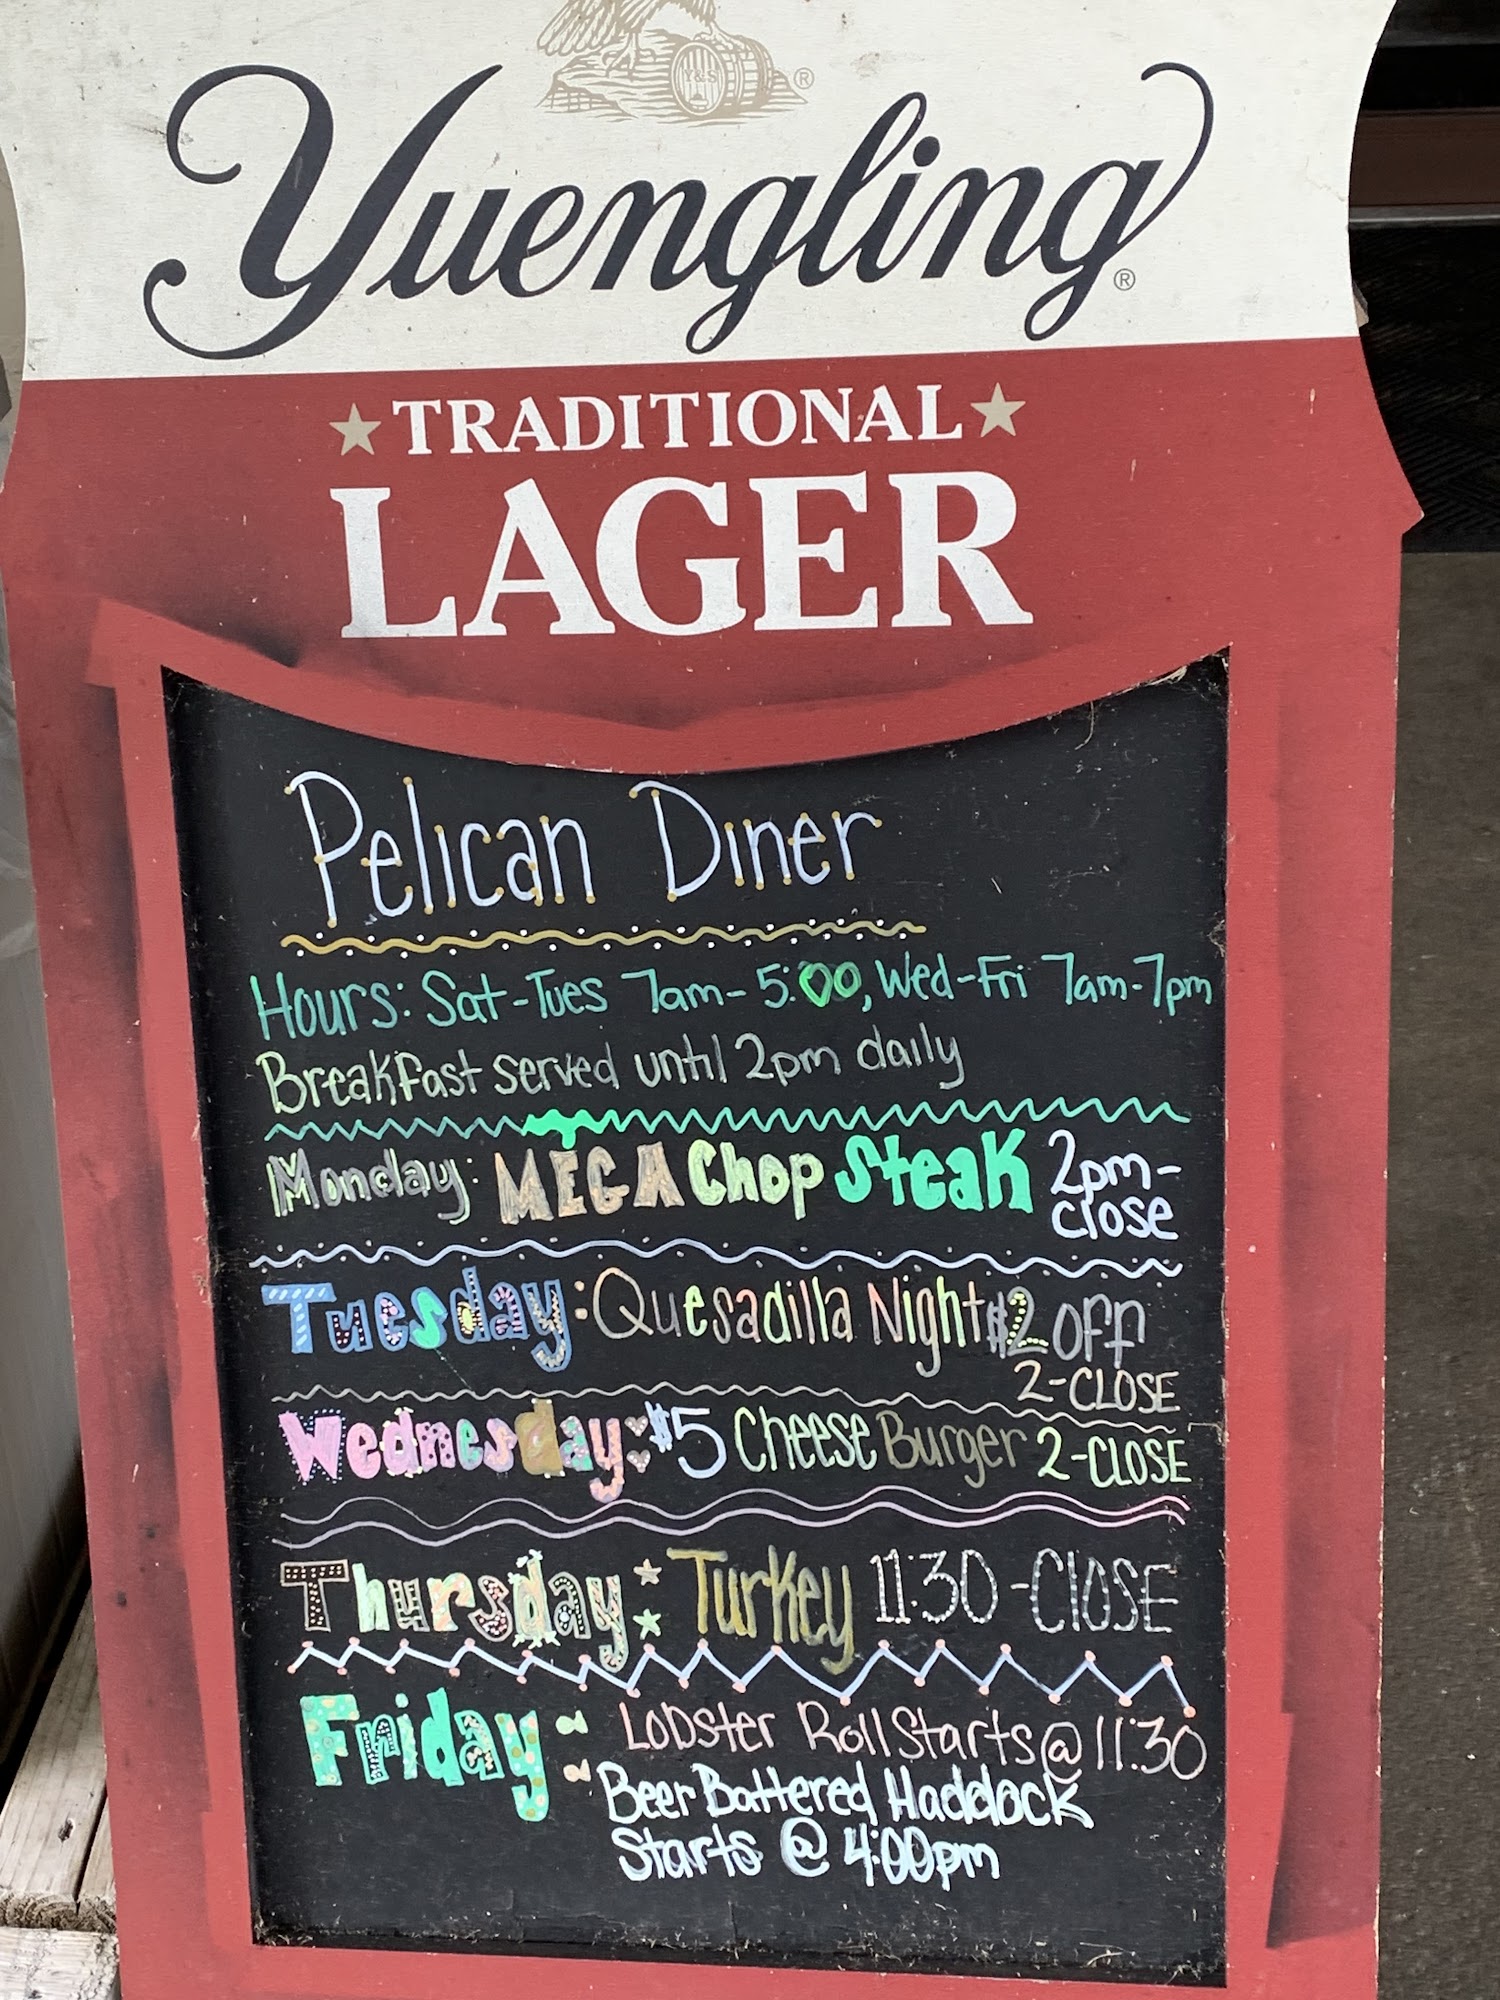 Y&S ®
Yuengling®
TRADITIONAL
LAGER
Pelican Diner
Hours: Sat-Tues 7am-5:00, Wed-Fri 7am-7pm
Breakfast served until 2pm daily
Monday: MEGA Chop Steak 2pm-
close
Tuesday: Quesadilla Night $2 OFF
2-CLOSE
Wednesday: $5 Cheese Burger 2-CLOSE
Thursday: Turkey 11:30-CLOSE
Friday: Lobster Roll Starts @ 11:30
Beer Battered Haddock
Starts @ 4:00pm